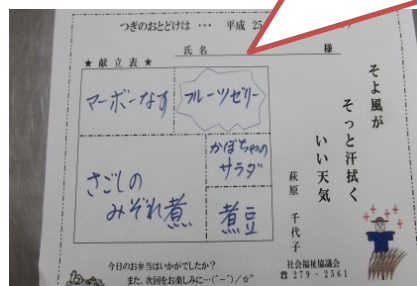 つぎのおとどけは … 平成 25
氏名 様
★ 献立表 ★
マーボーなす
フルーツゼリー
かぼちゃの
サラダ
さごしの
みぞれ煮
煮豆
そよ風が
そっと汗拭く
いい天気
萩原 千代子
今日のお弁当はいかがでしたか?
また、次回をお楽しみに…(^-^)/☆"
社会福祉協議会
☎ 279-2561